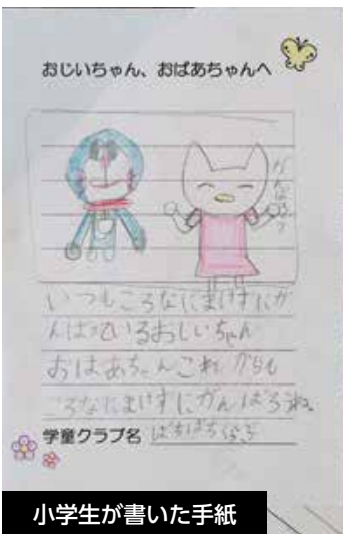 おじいちゃん、おばあちゃんへ
がんばって
いつもころなにまけずにが
んばっているおじいちゃん
おばあちゃんこれからも
ころなにまけずにがんばろうね。
学童クラブ名 ぱちぱちくらぶ
小学生が書いた手紙